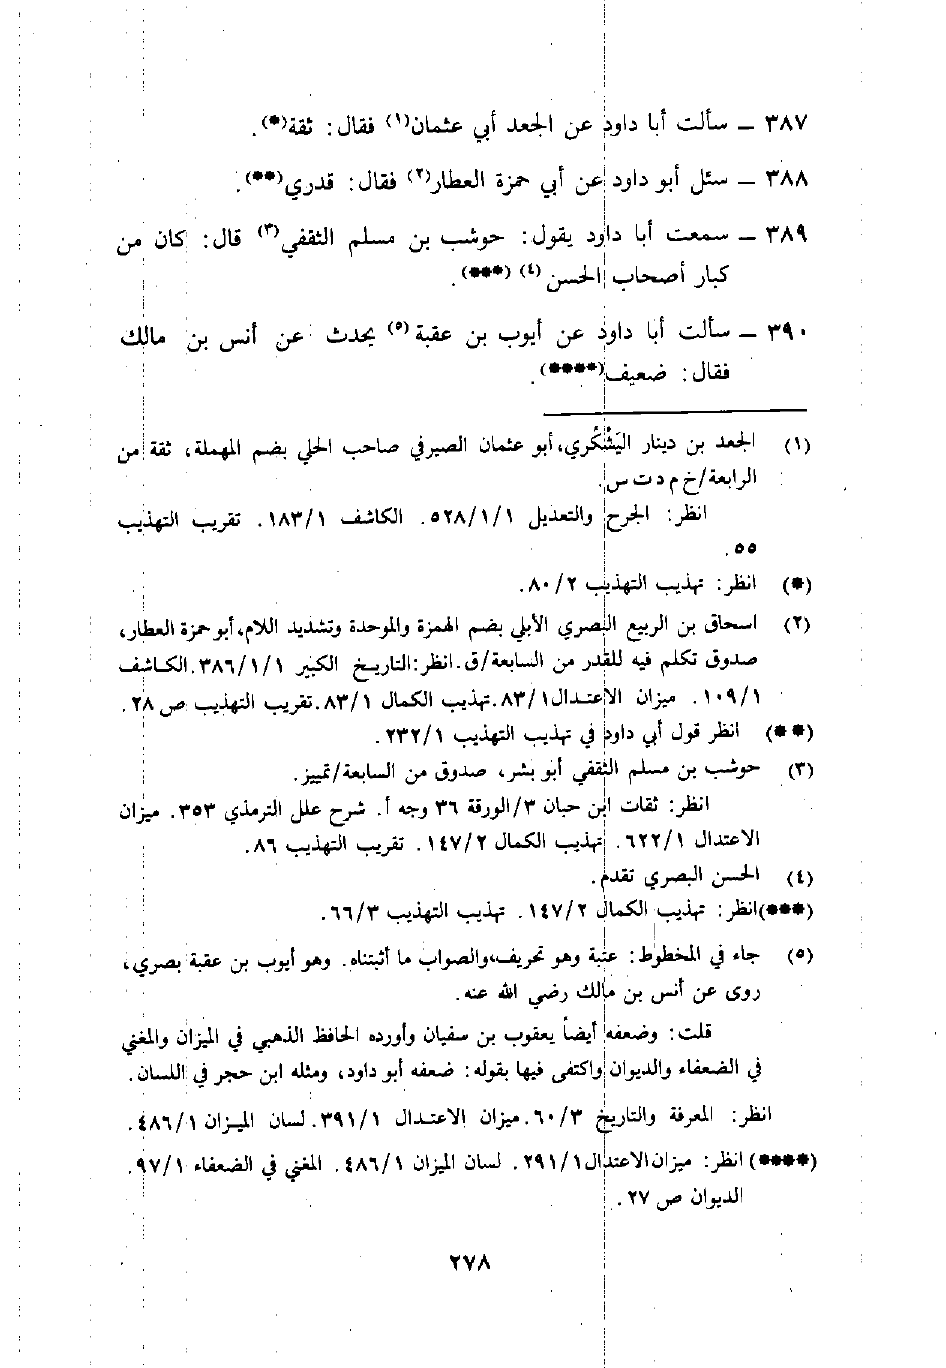 ٣٨٧ ــ سألت أبا داود عن الجعد أبي عثمان(١) فقال: ثقة(*).
٣٨٨ ــ سئل أبو داود عن أبي حمزة العطار(٢) فقال: قدري(**).
٣٨٩ ــ سمعت أبا داود يقول: حوشب بن مسلم الثقفي(٣) قال: كان من
كبار أصحاب الحسن(٤)(***).
٣٩٠ ــ سألت أبا داود عن أيوب بن عقبة(٥) يحدث عن أنس بن مالك
فقال: ضعيف(****).
(١) الجعد بن دينار اليَشْكُري، أبو عثمان الصيرفي صاحب الحلي بضم المهملة، ثقة من
الرابعة/خ م د ت س.
انظر: الجرح والتعديل ٥٢٨/١/١. الكاشف ١٨٣/١. تقريب التهذيب
٥٥.
(*) انظر: تهذيب التهذيب ٨٠/٢.
(٢) اسحاق بن الربيع البصري الأبلي بضم الهمزة والموحدة وتشديد اللام، أبو حمزة العطار،
صدوق تكلم فيه للقدر من السابعة/ق. انظر: التاريخ الكبير ٣٨٦/١/١. الكاشف
١٠٩/١. ميزان الاعتدال ٨٣/١. تهذيب الكمال ٨٣/١. تقريب التهذيب ص ٢٨.
(**) انظر قول أبي داود في تهذيب التهذيب ٢٣٢/١.
(٣) حوشب بن مسلم الثقفي أبو بشر، صدوق من السابعة/تمييز.
انظر: ثقات ابن حبان ٣/الورقة ٣٦ وجه أ. شرح علل الترمذي ٣٥٣. ميزان
الاعتدال ٦٢٢/١. تهذيب الكمال ١٤٧/٢. تقريب التهذيب ٨٦.
(٤) الحسن البصري تقدم.
(***) انظر: تهذيب الكمال ١٤٧/٢. تهذيب التهذيب ٦٦/٣.
(٥) جاء في المخطوط: عتبة وهو تحريف، والصواب ما أثبتناه. وهو أيوب بن عقبة بصري،
روى عن أنس بن مالك رضي الله عنه.
قلت: وضعفه أيضاً يعقوب بن سفيان وأورده الحافظ الذهبي في الميزان والمغني
في الضعفاء والديوان واكتفى فيها بقوله: ضعفه أبو داود، ومثله ابن حجر في اللسان.
انظر: المعرفة والتاريخ ٦٠/٣. ميزان الاعتدال ٣٩١/١. لسان الميزان ٤٨٦/١.
(****) انظر: ميزان الاعتدال ٢٩١/١. لسان الميزان ٤٨٦/١. المغني في الضعفاء ٩٧/١.
الديوان ص ٢٧.
٢٧٨